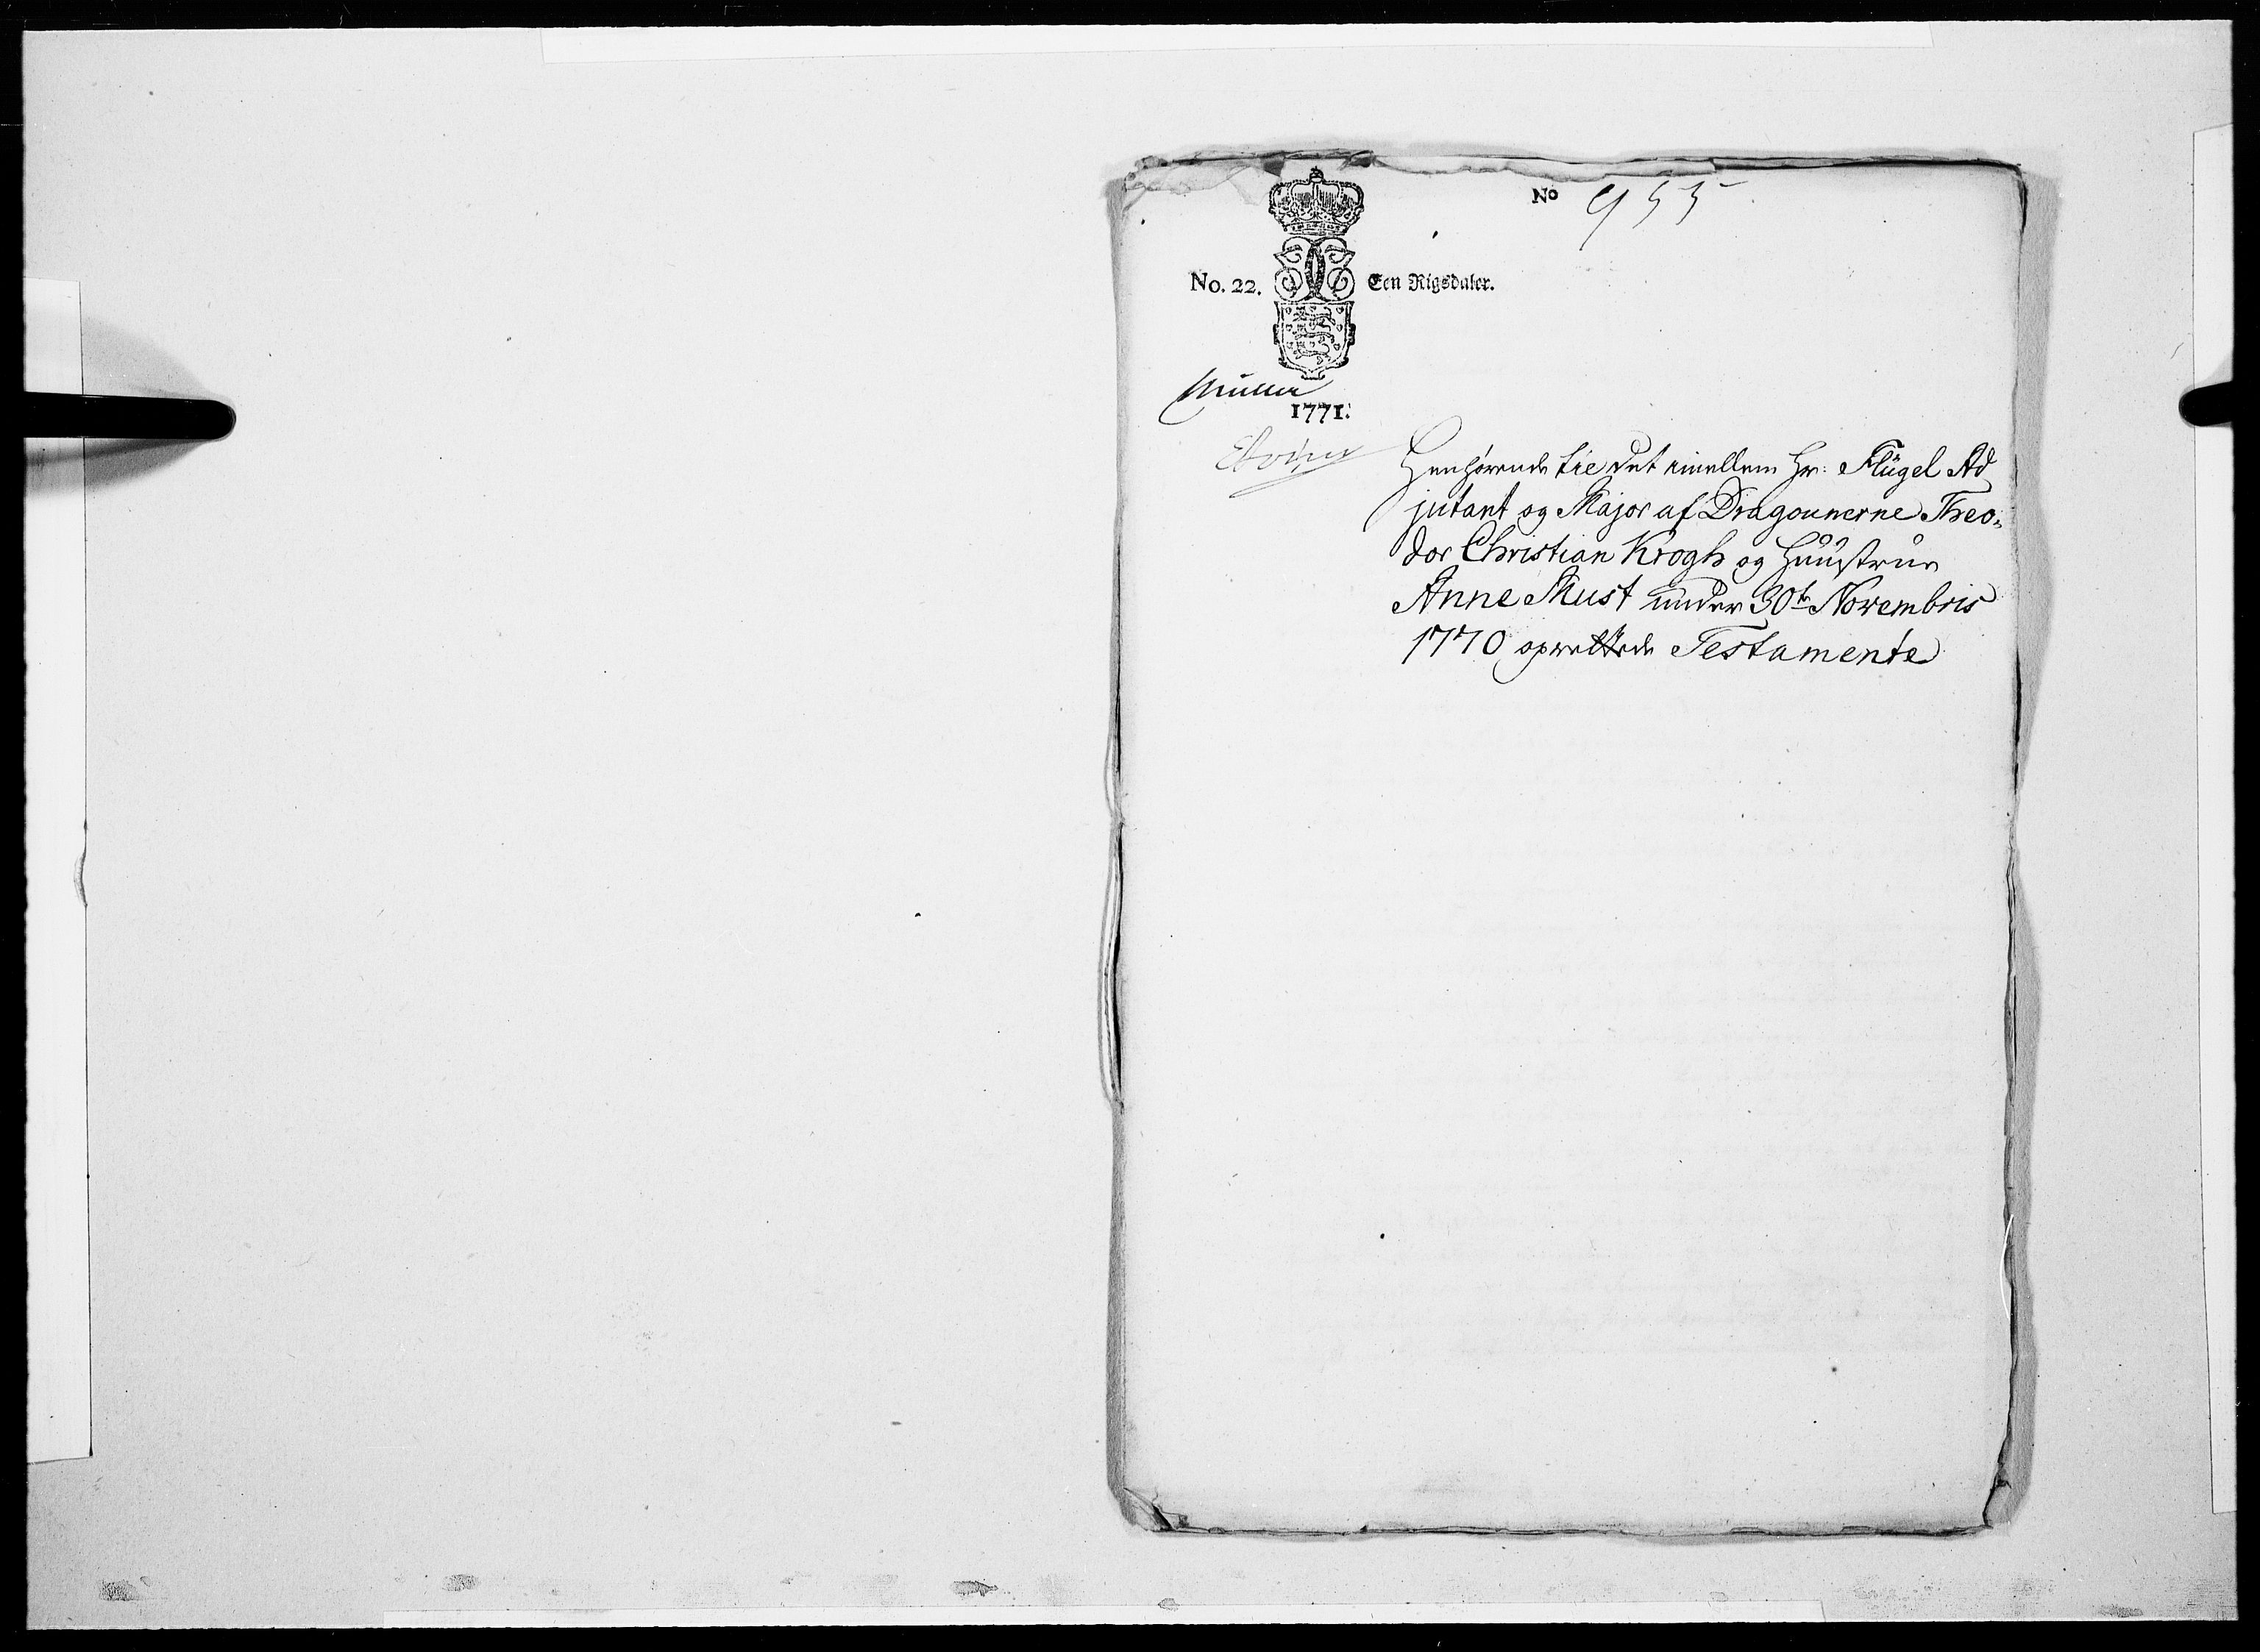 No 955
No. 22. Een Rigsdaler.
Müller
1771.
Henhørende til det imellem Hr: Flügel Ad
jutant og Major af Dragounerne Theo,
dor Christian Krogh og Huustrue
Anne Must under 30te Novembris
1770 oprettede Testamente